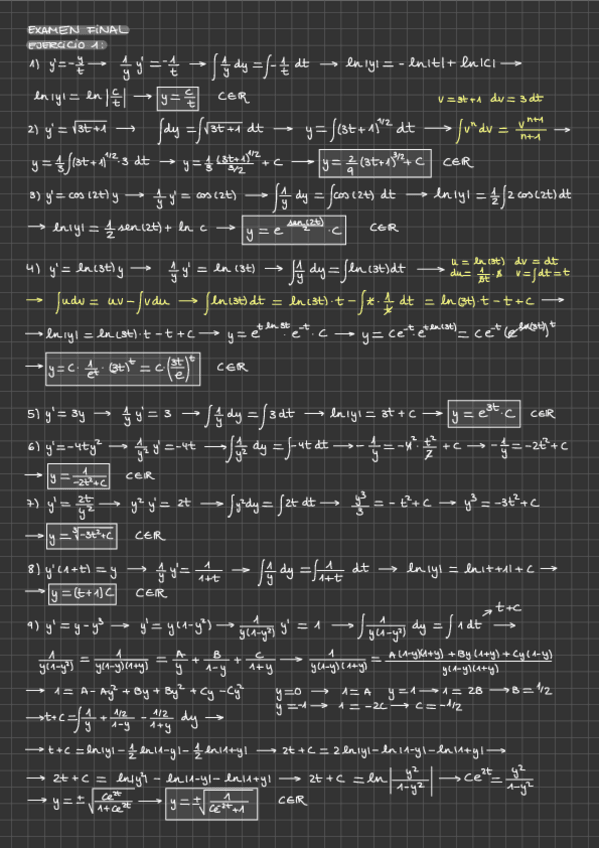 EXAMEN FINAL
EJERCICIO 1:
1) y' = -y/t → 1/y y' = -1/t → ∫1/y dy = ∫-1/t dt → ln|y| = -ln|t| + ln|C| →
ln|y| = ln|c/t| → y = c/t C∈R
v = 3t+1 dv = 3dt
2) y' = √3t+1 → ∫dy = ∫√3t+1 dt → y = ∫(3t+1)^1/2 dt → ∫v^n dv = v^n+1/n+1 →
y = 1/3 ∫(3t+1)^1/2 · 3 dt → y = 1/3 (3t+1)^3/2/3/2 + C → y = 2/9 (3t+1)^3/2 + C C∈R
3) y' = cos(2t) y → 1/y y' = cos(2t) → ∫1/y dy = ∫cos(2t) dt → ln|y| = 1/2 ∫2 cos(2t) dt
→ ln|y| = 1/2 sen(2t) + ln c → y = e^sen(2t)/2 · C C∈R
4) y' = ln(3t) y → 1/y y' = ln(3t) → ∫1/y dy = ∫ln(3t) dt → u = ln(3t) dv = dt
du = 1/3t · 3 v = ∫dt = t
→ ∫udv = uv - ∫vdu → ∫ln(3t) dt = ln(3t) · t - ∫t · 1/t dt = ln(3t) · t - t + C →
→ ln|y| = ln(3t) · t - t + C → y = e^t·ln3t · e^-t · C → y = Ce^-t · e^t·ln(3t) = Ce^-t (e^ln(3t))^t
→ y = C · 1/e^t · (3t)^t = C · (3t/e)^t C∈R
5) y' = 3y → 1/y y' = 3 → ∫1/y dy = ∫3dt → ln|y| = 3t + C → y = e^3t · C C∈R
6) y' = -4ty² → 1/y² y' = -4t → ∫1/y² dy = ∫-4t dt → -1/y = -4² · t²/2 + C → -1/y = -2t² + C
→ y = 1/-2t²+C C∈R
7) y' = 2t/y² → y² y' = 2t → ∫y² dy = ∫2t dt → y³/3 = -t² + C → y³ = -3t² + C
→ y = ∛-3t²+C C∈R
8) y'(1+t) = y → 1/y y' = 1/1+t → ∫1/y dy = ∫1/1+t dt → ln|y| = ln|t+1| + C →
→ y = (t+1) C C∈R
9) y' = y - y³ → y' = y(1-y²) → 1/y(1-y²) y' = 1 → ∫1/y(1-y²) dy = ∫1 dt → t+C
1/y(1-y²) = 1/y(1-y)(1+y) = A/y + B/1-y + C/1+y → 1/y(1-y)(1+y) = A(1-y)(1+y) + By(1+y) + Cy(1-y)/y(1-y)(1+y)
→ 1 = A - Ay² + By + By² + Cy - Cy² y=0 → 1 = A y=1 → 1 = 2B → B = 1/2
y=-1 → 1 = -2C → C = -1/2
→ t+C = ∫1/y + 1/2/1-y - 1/2/1+y dy →
→ t+C = ln|y| - 1/2 ln|1-y| - 1/2 ln|1+y| → 2t+C = 2ln|y| - ln|1-y| - ln|1+y| →
→ 2t+C = ln|y²| - ln|1-y| - ln|1+y| → 2t+C = ln|y²/1-y²| → Ce^2t = y²/1-y²
→ y = ±√Ce^2t/1+Ce^2t → y = ±√1/Ce^-2t+1 C∈R